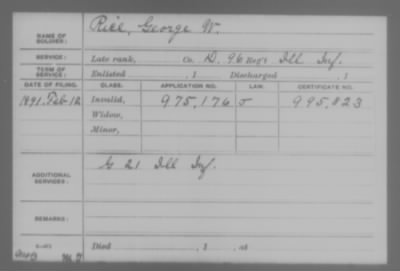 NAME OF SOLDIER: Rice, George W.
SERVICE: Late rank, Co. D, 96 Reg't Ill Inf.
TERM OF SERVICE: Enlisted , 1 Discharged , 1
DATE OF FILING. CLASS. APPLICATION NO. LAW. CERTIFICATE NO.
1891. Feb. 12 Invalid, 975,176 995,823
Widow,
Minor,
ADDITIONAL SERVICES: G 21 Ill Inf.
REMARKS:
Died , 1 , at